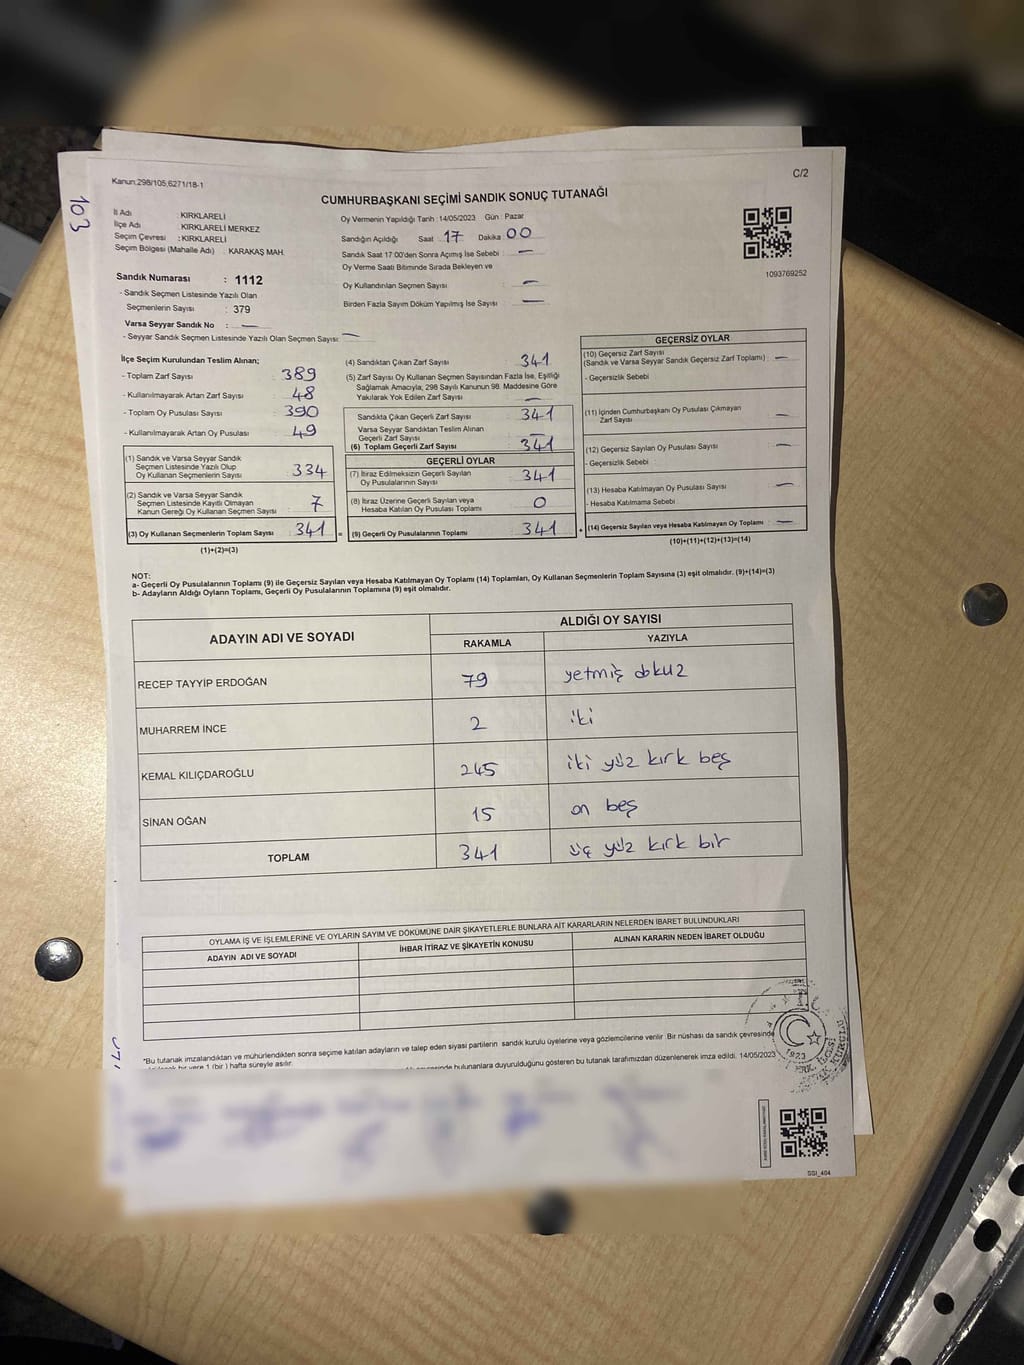 Kanun:298/105,6271/18-1
C/2
103
CUMHURBAŞKANI SEÇİMİ SANDIK SONUÇ TUTANAĞI
İli Adı : KIRKLARELİ
İlçe Adı : KIRKLARELİ MERKEZ
Seçim Çevresi : KIRKLARELİ
Seçim Bölgesi (Mahalle Adı) : KARAKAŞ MAH.
Sandık Numarası : 1112
- Sandık Seçmen Listesinde Yazılı Olan
Seçmenlerin Sayısı : 379
Varsa Seyyar Sandık No : —
- Seyyar Sandık Seçmen Listesinde Yazılı Olan Seçmen Sayısı: —
Oy Vermenin Yapıldığı Tarih :14/05/2023 Gün : Pazar
Sandığın Açıldığı Saat : 17 Dakika : 00
Sandık Saat 17:00'den Sonra Açımış İse Sebebi : —
Oy Verme Saati Bitiminde Sırada Bekleyen ve
Oy Kullandırılan Seçmen Sayısı : —
Birden Fazla Sayım Döküm Yapılmış İse Sayısı : —
1093769252
İlçe Seçim Kurulundan Teslim Alınan;
- Toplam Zarf Sayısı : 389
- Kullanılmayarak Artan Zarf Sayısı : 48
- Toplam Oy Pusulası Sayısı : 390
- Kullanılmayarak Artan Oy Pusulası : 49
(1) Sandık ve Varsa Seyyar Sandık
Seçmen Listesinde Yazılı Olup
Oy Kullanan Seçmenlerin Sayısı : 334
(2) Sandık ve Varsa Seyyar Sandık
Seçmen Listesinde Kayıtlı Olmayan
Kanun Gereği Oy Kullanan Seçmen Sayısı : 7
(3) Oy Kullanan Seçmenlerin Toplam Sayısı : 341 =
(1)+(2)=(3)
(4) Sandıktan Çıkan Zarf Sayısı : 341
(5) Zarf Sayısı Oy Kullanan Seçmen Sayısından Fazla İse, Eşitliği
Sağlamak Amacıyla; 298 Sayılı Kanunun 98. Maddesine Göre
Yakılarak Yok Edilen Zarf Sayısı : —
Sandıkta Çıkan Geçerli Zarf Sayısı : 341
Varsa Seyyar Sandıktan Teslim Alınan
Geçerli Zarf Sayısı : —
(6) Toplam Geçerli Zarf Sayısı : 341
GEÇERLİ OYLAR
(7) İtiraz Edilmeksizin Geçerli Sayılan
Oy Pusulalarının Sayısı : 341
(8) İtiraz Üzerine Geçerli Sayılan veya
Hesaba Katılan Oy Pusulası Toplamı : 0
(9) Geçerli Oy Pusulalarının Toplamı : 341 +
GEÇERSİZ OYLAR
(10) Geçersiz Zarf Sayısı
(Sandık ve Varsa Seyyar Sandık Geçersiz Zarf Toplamı) : —
- Geçersizlik Sebebi :
(11) İçinden Cumhurbaşkanı Oy Pusulası Çıkmayan
Zarf Sayısı : —
(12) Geçersiz Sayılan Oy Pusulası Sayısı : —
- Geçersizlik Sebebi :
(13) Hesaba Katılmayan Oy Pusulası Sayısı : —
- Hesaba Katılmama Sebebi :
(14) Geçersiz Sayılan veya Hesaba Katılmayan Oy Toplamı : —
(10)+(11)+(12)+(13)=(14)
NOT:
a- Geçerli Oy Pusulalarının Toplamı (9) ile Geçersiz Sayılan veya Hesaba Katılmayan Oy Toplamı (14) Toplamları, Oy Kullanan Seçmenlerin Toplam Sayısına (3) eşit olmalıdır. (9)+(14)=(3)
b- Adayların Aldığı Oyların Toplamı, Geçerli Oy Pusulalarının Toplamına (9) eşit olmalıdır.
ADAYIN ADI VE SOYADI
ALDIĞI OY SAYISI
RAKAMLA YAZIYLA
RECEP TAYYİP ERDOĞAN 79 yetmiş dokuz
MUHARREM İNCE 2 iki
KEMAL KILIÇDAROĞLU 245 iki yüz kırk beş
SİNAN OĞAN 15 on beş
TOPLAM 341 üç yüz kırk bir
OYLAMA İŞ VE İŞLEMLERİNE VE OYLARIN SAYIM VE DÖKÜMÜNE DAİR ŞİKAYETLERLE BUNLARA AİT KARARLARIN NELERDEN İBARET BULUNDUKLARI
ADAYIN ADI VE SOYADI İHBAR İTİRAZ VE ŞİKAYETİN KONUSU ALINAN KARARIN NEDEN İBARET OLDUĞU
*Bu tutanak imzalandıktan ve mühürlendikten sonra seçime katılan adayların ve talep eden siyasi partilerin sandık kurulu üyelerine veya gözlemcilerine verilir. Bir nüshası da sandık çevresinde
bir yere 1 (bir) hafta süreyle asılır.
bulunanlara duyurulduğunu gösteren bu tutanak tarafımızdan düzenlenerek imza edildi. 14/05/2023
T.C.
1923
SGI_404